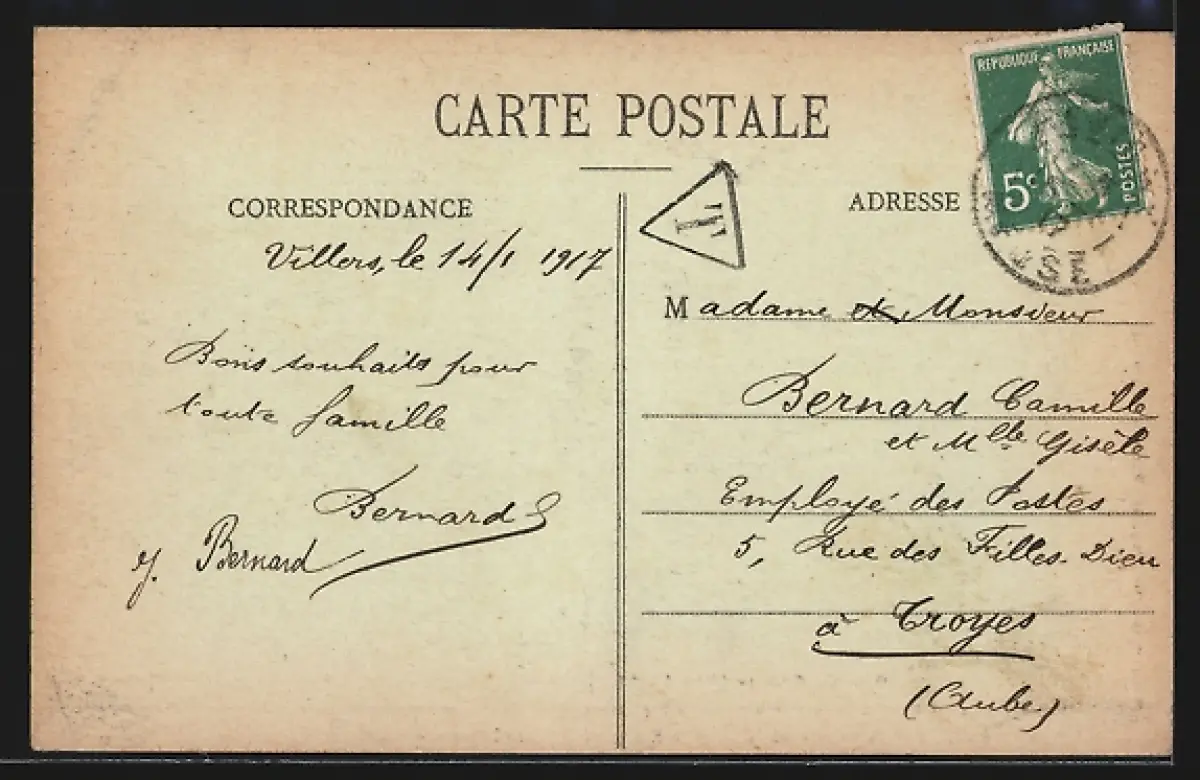 CARTE POSTALE
CORRESPONDANCE
Villers, le 14/1 1917
Bons souhaits pour
toute famille
Bernard
Bernard
T
ADRESSE
RÉPUBLIQUE FRANÇAISE
5c
POSTES
Madame & Monsieur
Bernard Camille
et Mlle Gisèle
Employé des Postes
5, Rue des Filles-Dieu
à Troyes
(Aube)